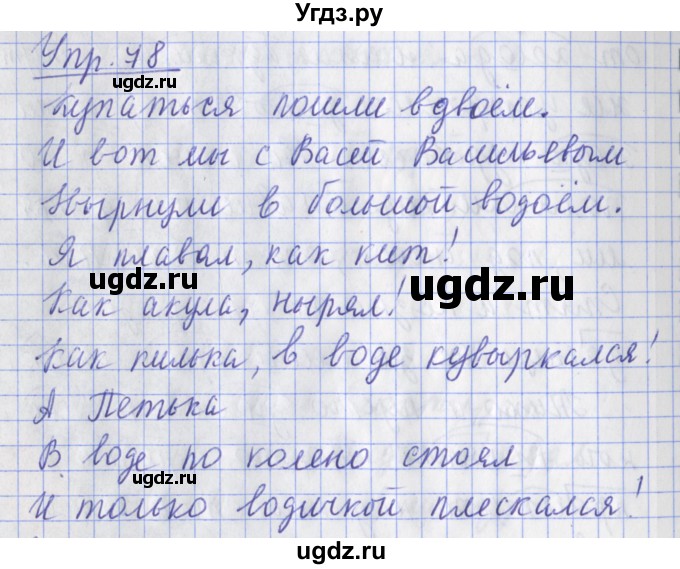 Угдз.ру
Упр. 78
ugdz.ru
Купаться пошли вдвоём.
ugdz.ru
И вот мы с Васей Васильевым
Нырнули в большой водоём.
ugdz.ru
Я плавал, как кит!
ugdz.ru
ugdz.ru
Как акула, нырял!
Как килька, в воде кувыркался!
А Петька
В воде по колено стоял
ugdz.ru
ugdz.ru
И только водичкой плескался!
ugdz.ru